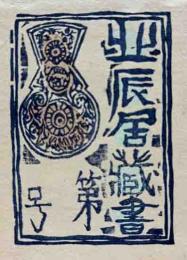 辰居藏書
第
号